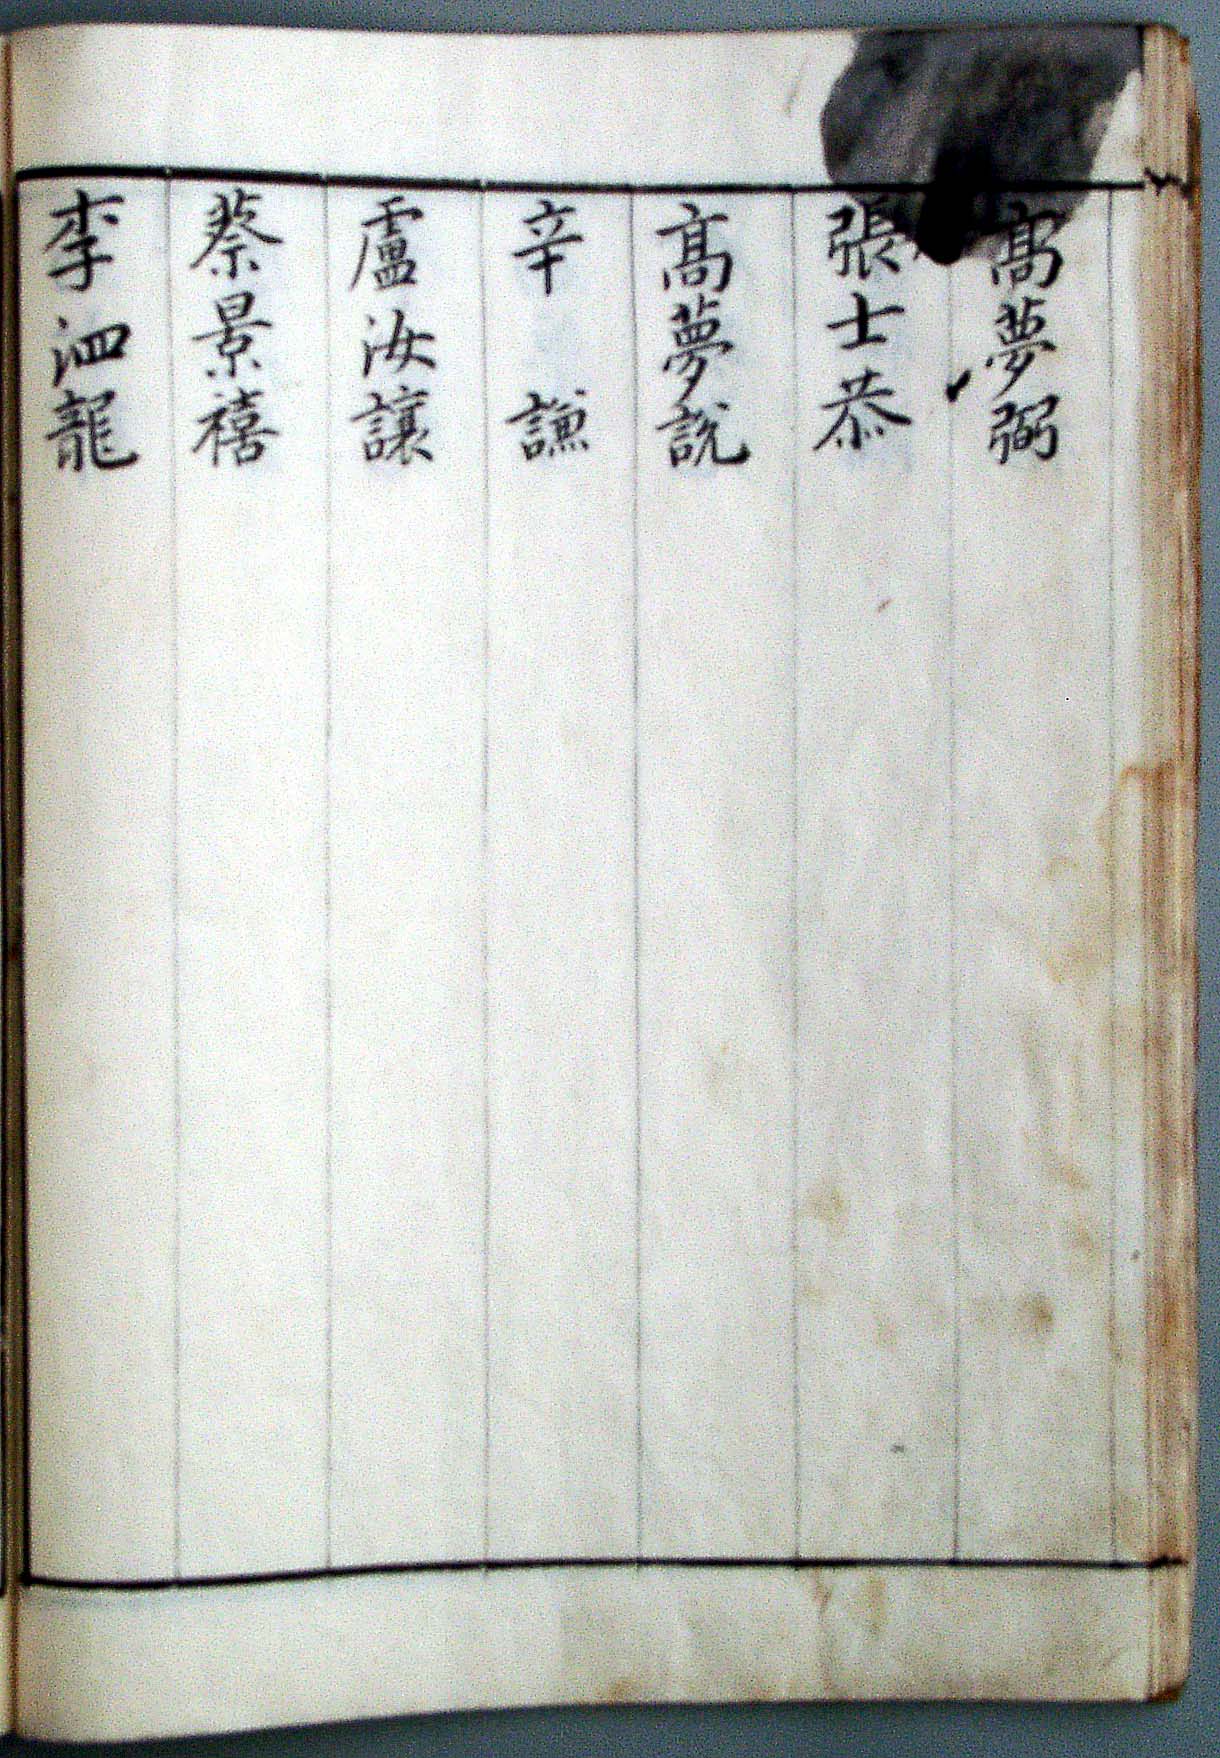 髙夢弼
張士恭
髙夢說
辛 謙
盧汝讓
蔡景禧
李泗龍